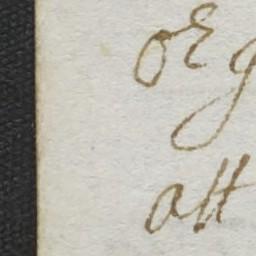 or g
att